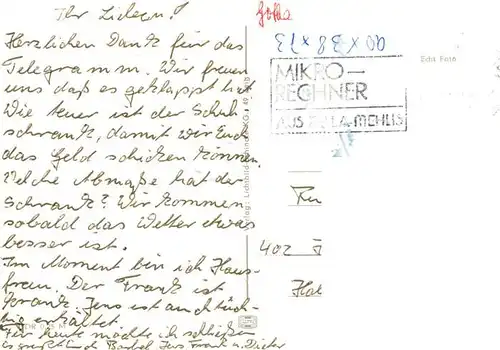 Ihr Lieben!
Herzlichen Dank für das
Telegramm. Wir freuen
uns daß es geklappt hat
Wie teuer ist der Schuh
schrank, damit wir Euch
das Geld schicken können.
Welche Abmaße hat der
Schrank? Wir kommen
sobald das Wetter etwas
besser ist.
Im Moment bin ich Haus-
frau. Der Frank ist
krank. Jens ist auch tüch-
tig erkältet.
Für heute möchte ich schließen
es grüßt Euch Bärbel Jens Frank u. Dieter
Gotha
90 x 38 x 73
MIKRO-
RECHNER
AUS ZELLA-MEHLIS
Echt Foto
402